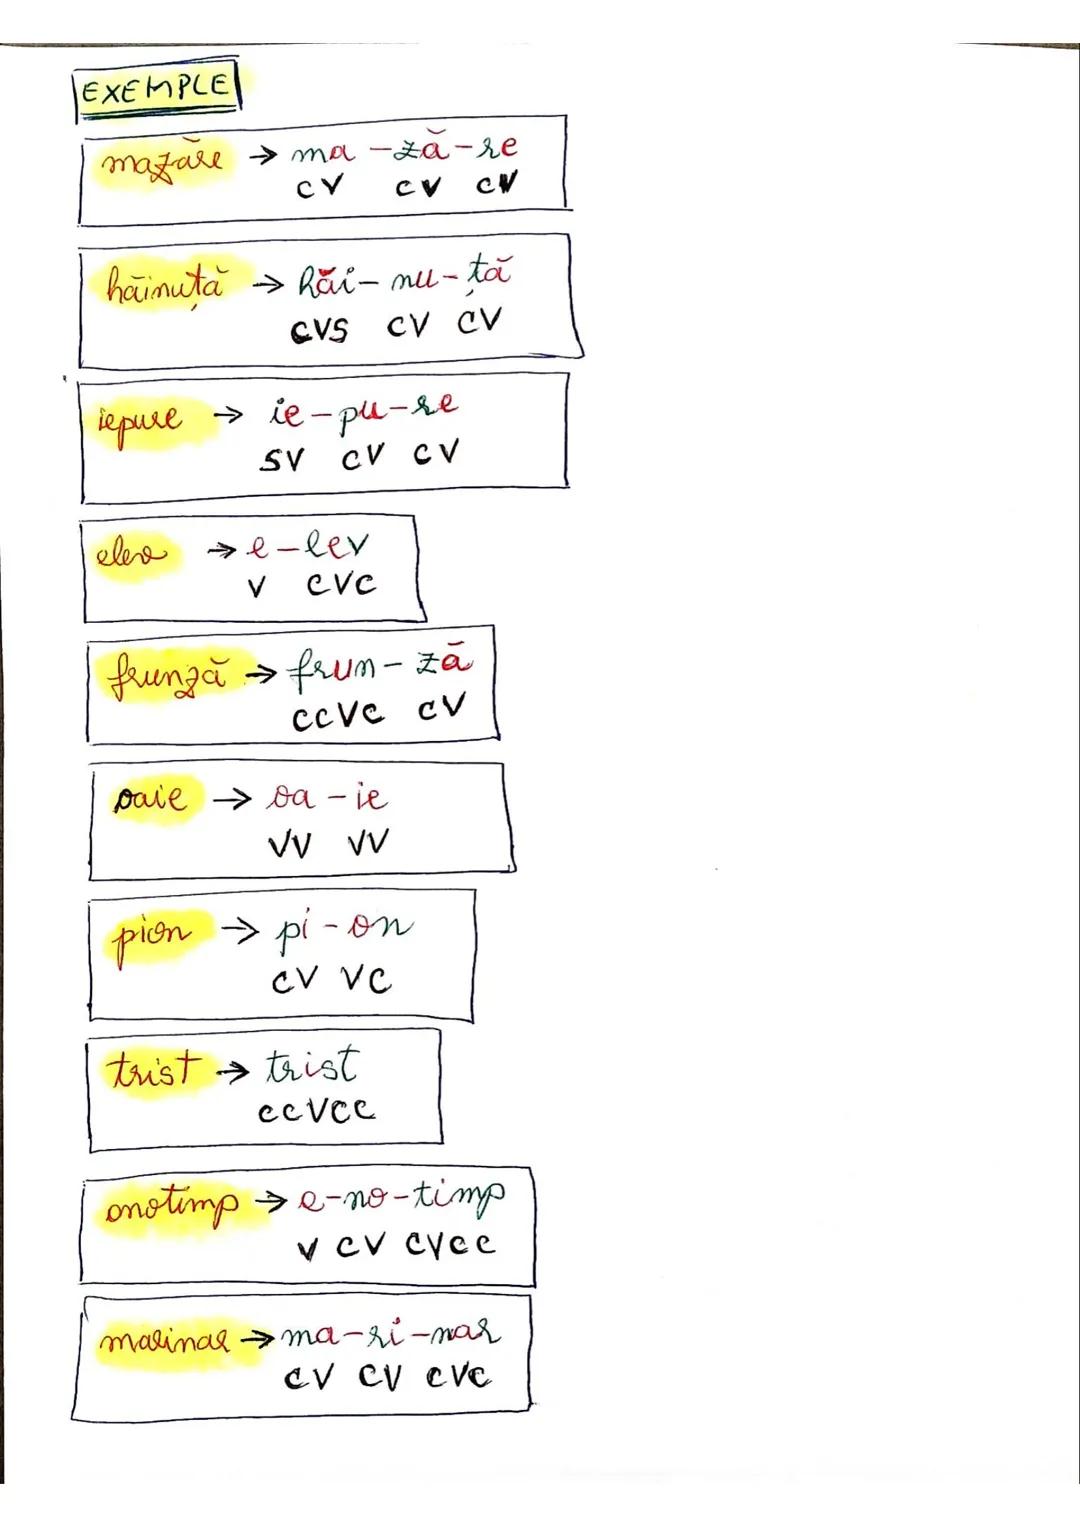 EXEMPLE
mazăre → ma - ză - re
CV CV CV
hăinuță → hăi - nu - ță
CVS CV CV
iepure → ie - pu - re
SV CV CV
elev → e - lev
V CVC
frunză → frun - ză
CCVC CV
oaie → oa - ie
VV VV
pion → pi - on
CV VC
trist → trist
CCVCC
onotimp → e - no - timp
V CV CVCC
marinar → ma - ri - nar
CV CV CVC